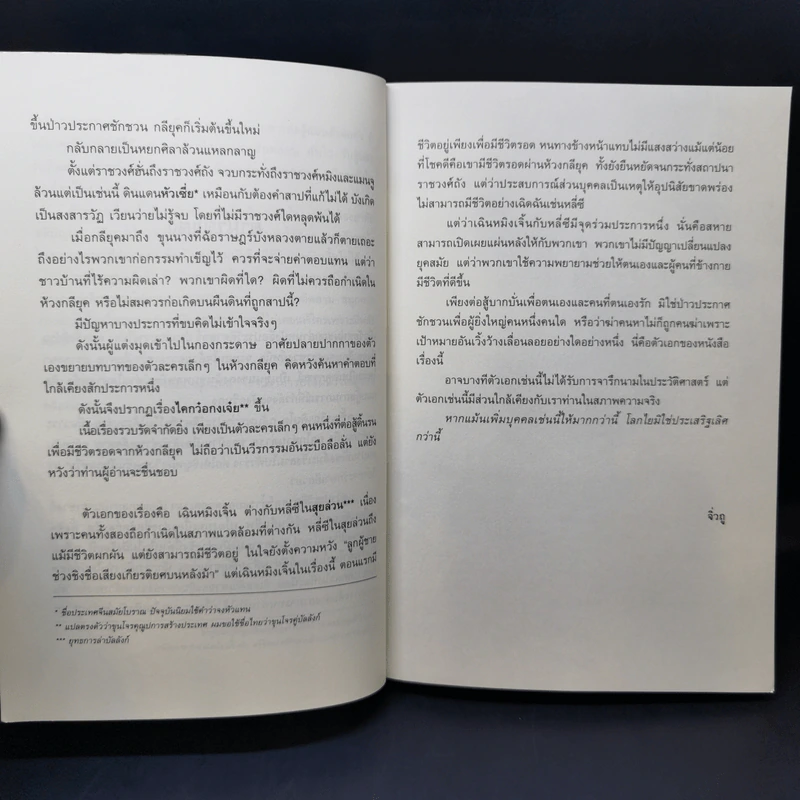 ขึ้นป่าวประกาศชักชวน กลียุคก็เริ่มต้นขึ้นใหม่
กลับกลายเป็นหยกศิลาล้วนแหลกลาญ
ตั้งแต่ราชวงศ์ฮั่นถึงราชวงศ์ถัง จวบกระทั่งถึงราชวงศ์หมิงและแมนจู
ล้วนแต่เป็นเช่นนี้ ดินแดนหัวเซี่ย* เหมือนกับต้องคำสาปที่แก้ไม่ได้ บังเกิด
เป็นสงสารวัฏ เวียนว่ายไม่รู้จบ โดยที่ไม่มีราชวงศ์ใดหลุดพ้นได้
เมื่อกลียุคมาถึง ขุนนางที่ฉ้อราษฎร์บังหลวงตายแล้วก็ตายเถอะ
ถึงอย่างไรพวกเขาก่อกรรมทำเข็ญไว้ ควรที่จะจ่ายค่าตอบแทน แต่ว่า
ชาวบ้านที่ไร้ความผิดเล่า? พวกเขาผิดที่ใด? ผิดที่ไม่ควรถือกำเนิดใน
ห้วงกลียุค หรือไม่สมควรก่อเกิดบนผืนดินที่ถูกสาปนี้?
มีปัญหาบางประการที่ขบคิดไม่เข้าใจจริงๆ
ดังนั้นผู้แต่งมุดเข้าไปในกองกระดาษ อาศัยปลายปากกาของตัว
เองขยายบทบาทของตัวละครเล็กๆ ในห้วงกลียุค คิดหวังค้นหาคำตอบที่
ใกล้เคียงสักประการหนึ่ง
ดังนั้นจึงปรากฏเรื่องไคกว๋อกงเจ๋ย** ขึ้น
เนื้อเรื่องรวบรัดจำกัดยิ่ง เพียงเป็นตัวละครเล็กๆ คนหนึ่งที่ต่อสู้ดิ้นรน
เพื่อมีชีวิตรอดจากห้วงกลียุค ไม่ถือว่าเป็นวีรกรรมอันระบือลือลั่น แต่ยัง
หวังว่าท่านผู้อ่านจะชื่นชอบ
ตัวเอกของเรื่องคือ เฉินหมิงเจิ้น ต่างกับหลี่ซีในสุยล่วน*** เนื่อง
เพราะคนทั้งสองถือกำเนิดในสภาพแวดล้อมที่ต่างกัน หลี่ซีในสุยล่วนถึง
แม้มีชีวิตผกผัน แต่ยังสามารถมีชีวิตอยู่ ในใจยังตั้งความหวัง "ลูกผู้ชาย
ช่วงชิงชื่อเสียงเกียรติยศบนหลังม้า" แต่เฉินหมิงเจิ้นในเรื่องนี้ ตอนแรกมี
* ชื่อประเทศจีนสมัยโบราณ ปัจจุบันนิยมใช้คำว่าจงหัวแทน
** แปลตรงตัวว่าขุนโจรคุณูปการสร้างประเทศ ผมขอใช้ชื่อไทยว่าขุนโจรคู่บัลลังก์
*** ยุทธการล่าบัลลังก์
ชีวิตอยู่เพียงเพื่อมีชีวิตรอด หนทางข้างหน้าแทบไม่มีแสงสว่างแม้แต่น้อย
ที่โชคดีคือเขามีชีวิตรอดผ่านห้วงกลียุค ทั้งยังยืนหยัดจนกระทั่งสถาปนา
ราชวงศ์ถัง แต่ว่าประสบการณ์ส่วนบุคคลเป็นเหตุให้อุปนิสัยขาดพร่อง
ไม่สามารถมีชีวิตอย่างเฉิดฉันเช่นหลี่ซี
แต่ว่าเฉินหมิงเจิ้นกับหลี่ซีมีจุดร่วมประการหนึ่ง นั่นคือสหาย
สามารถเปิดเผยแผ่นหลังให้กับพวกเขา พวกเขาไม่มีปัญญาเปลี่ยนแปลง
ยุคสมัย แต่ว่าพวกเขาใช้ความพยายามช่วยให้ตนเองและผู้คนที่ข้างกาย
มีชีวิตที่ดีขึ้น
เพียงต่อสู้บากบั่นเพื่อตนเองและคนที่ตนเองรัก มิใช่ป่าวประกาศ
ชักชวนเพื่อผู้ยิ่งใหญ่คนหนึ่งคนใด หรือว่าฆ่าคนหาไม่ก็ถูกคนฆ่าเพราะ
เป้าหมายอันเวิ้งว้างเลื่อนลอยอย่างใดอย่างหนึ่ง นี่คือตัวเอกของหนังสือ
เรื่องนี้
อาจบางทีตัวเอกเช่นนี้ไม่ได้รับการจารึกนามในประวัติศาสตร์ แต่
ตัวเอกเช่นนี้มีส่วนใกล้เคียงกับเราท่านในสภาพความจริง
หากแม้นเพิ่มบุคคลเช่นนี้ให้มากกว่านี้ โลกไยมิใช่ประเสริฐเลิศ
กว่านี้
จิ่วถู